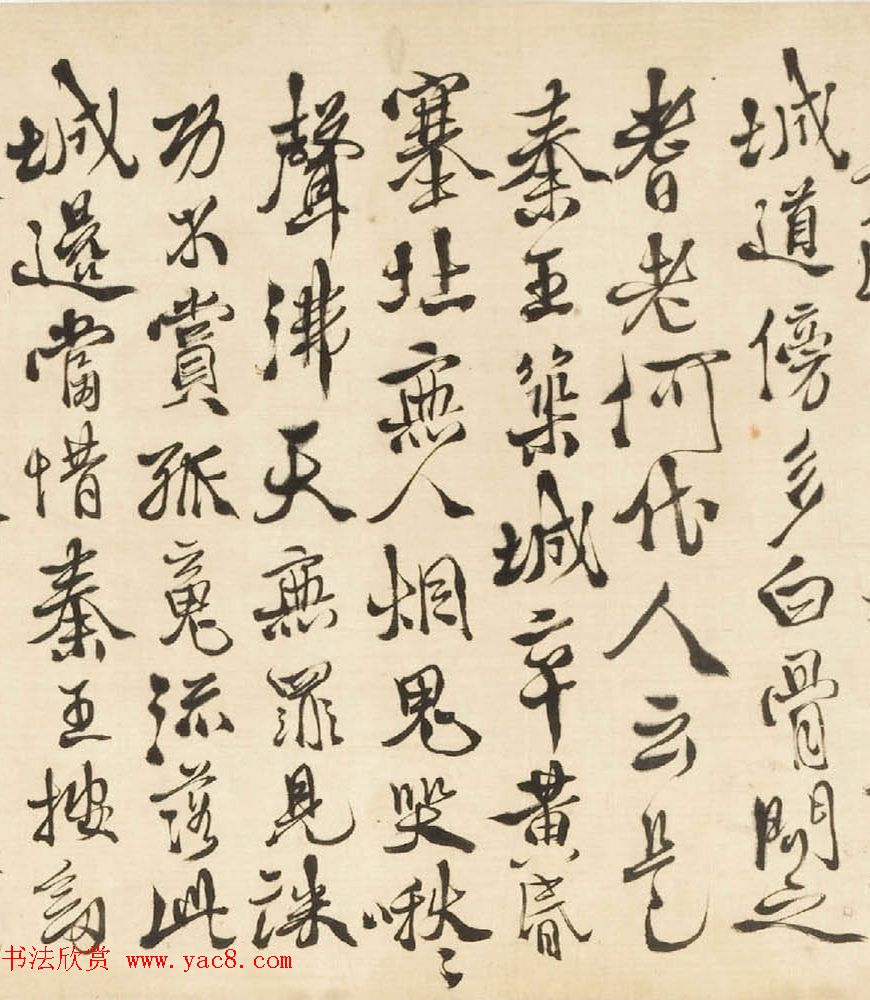 城道傍多白骨問之
耆老何代人云是
秦王築城卒黄昏
塞北無人烟鬼哭啾〻
聲沸天無罪見誅
功不賞孤魂流落此
城邊當惜秦王按劍
书法欣赏 www.yac8.com